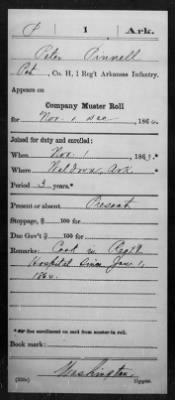 P 1 Ark.
Peter Pinnell
Pvt, Co. H, 1 Reg't Arkansas Infantry.
Appears on
Company Muster Roll
for Nov. & Dec, 186
Joined for duty and enrolled:
When Nov. 1, 186
Where Waldron, Ark
Period 3 years.*
Present or absent, Present
Stoppage, $ 100 for
Due Gov't $ 100 for
Remarks: Cook in Reg'tl
Hospital since Jan. 1,
186
enrollment on card from muster-in roll.
Book mark:
Washington
Copyist.